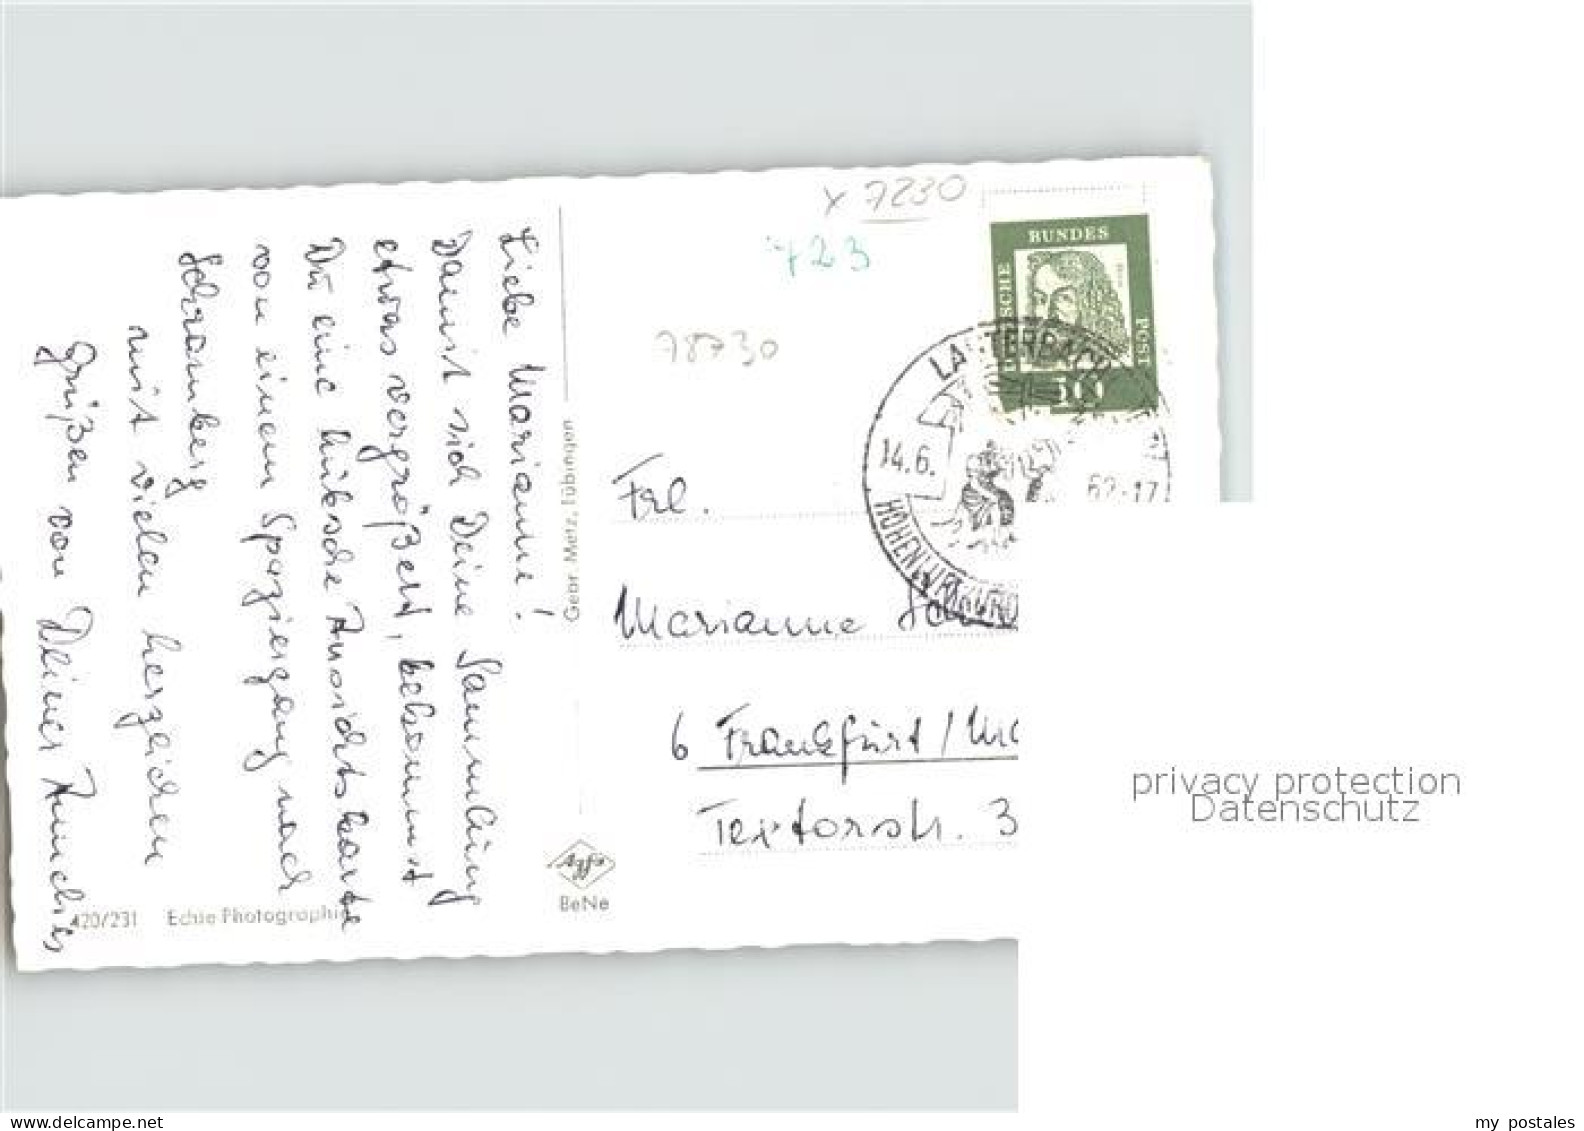 Liebe Marianne!
Damit sich Deine Sammlung
etwas vergrößert, bekommst
Du eine hübsche Ansichtskarte
von einem Spaziergang nach
Schramberg
mit vielen herzlichen
Grüßen von Deiner Annelies
420/231 Echte Photographie
Gebr. Metz, Tübingen
Agfa
BeNe
x 7230
723
78730
BUNDES
POST
LAUTERBACH
14.6. 62-17
Frl.
Marianne
6 Frankfurt/
Textorstr. 3
privacy protection
Datenschutz
www.delcampe.net
my postales